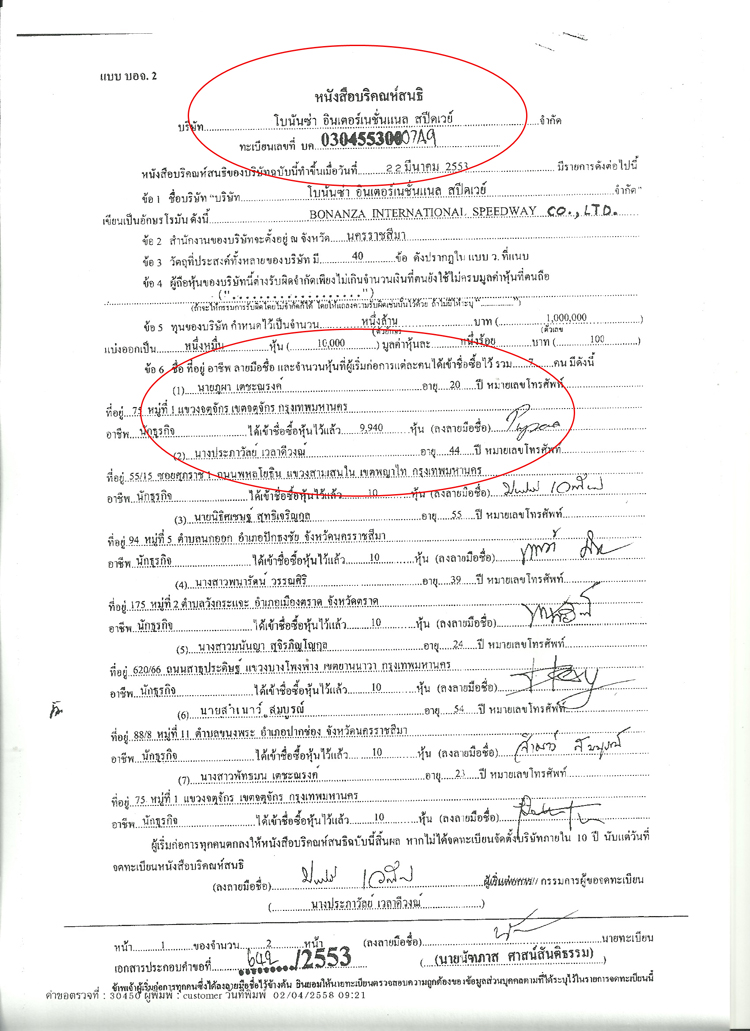 แบบ บอจ. 2
หนังสือบริคณห์สนธิ
บริษัท โบนันซ่า อินเตอร์เนชั่นแนล สปีดเวย์ จำกัด
ทะเบียนเลขที่ บค. 0304553000749
หนังสือบริคณห์สนธิของบริษัทฉบับนี้ทำขึ้นเมื่อวันที่ 22 มีนาคม 2553 มีรายการดังต่อไปนี้
ข้อ 1 ชื่อบริษัท "บริษัท โบนันซ่า อินเตอร์เนชั่นแนล สปีดเวย์ จำกัด"
เขียนเป็นอักษรโรมัน ดังนี้ BONANZA INTERNATIONAL SPEEDWAY CO., LTD.
ข้อ 2 สำนักงานของบริษัทจะตั้งอยู่ ณ จังหวัด นครราชสีมา
ข้อ 3 วัตถุที่ประสงค์ทั้งหลายของบริษัท มี 40 ข้อ ดังปรากฏใน แบบ ว. ที่แนบ
ข้อ 4 ผู้ถือหุ้นของบริษัทนี้ต่างรับผิดจำกัดเพียงไม่เกินจำนวนเงินที่ตนยังใช้ไม่ครบมูลค่าหุ้นที่ตนถือ
ข้อ 5 ทุนของบริษัท กำหนดไว้เป็นจำนวน หนึ่งล้าน บาท ( 1,000,000 )
(ตัวอักษร) (ตัวเลข)
แบ่งออกเป็น หนึ่งหมื่น หุ้น ( 10,000 ) มูลค่าหุ้นละ หนึ่งร้อย บาท ( 100 )
ข้อ 6 ชื่อ ที่อยู่ อาชีพ ลายมือชื่อ และจำนวนหุ้นที่ผู้เริ่มก่อการแต่ละคนได้เข้าชื่อซื้อไว้ รวม 7 คน มีดังนี้
(1) นายภูผา เตชะณรงค์ อายุ 20 ปี หมายเลขโทรศัพท์
ที่อยู่ 75 หมู่ที่ 1 แขวงจตุจักร เขตจตุจักร กรุงเทพมหานคร
อาชีพ นักธุรกิจ ได้เข้าชื่อซื้อหุ้นไว้แล้ว 9,940 หุ้น (ลงลายมือชื่อ)
(2) นางประภาวัลย์ เวลาดีวงณ์ อายุ 44 ปี หมายเลขโทรศัพท์
ที่อยู่ 55/15 ซอยศุภราช 1 ถนนพหลโยธิน แขวงสามเสนใน เขตพญาไท กรุงเทพมหานคร
อาชีพ นักธุรกิจ ได้เข้าชื่อซื้อหุ้นไว้แล้ว 10 หุ้น (ลงลายมือชื่อ)
(3) นายนิธิศเชษฐ์ สุทธิเจริญกุล อายุ 55 ปี หมายเลขโทรศัพท์
ที่อยู่ 94 หมู่ที่ 5 ตำบลนกออก อำเภอปักธงชัย จังหวัดนครราชสีมา
อาชีพ นักธุรกิจ ได้เข้าชื่อซื้อหุ้นไว้แล้ว 10 หุ้น (ลงลายมือชื่อ)
(4) นางสาวพนารัตน์ วรรณศิริ อายุ 39 ปี หมายเลขโทรศัพท์
ที่อยู่ 175 หมู่ที่ 2 ตำบลวังกระแจะ อำเภอเมืองตราด จังหวัดตราด
อาชีพ นักธุรกิจ ได้เข้าชื่อซื้อหุ้นไว้แล้ว 10 หุ้น (ลงลายมือชื่อ)
(5) นางสาวมนันญา สุจิรภิญโญกุล อายุ 24 ปี หมายเลขโทรศัพท์
ที่อยู่ 620/66 ถนนสาธุประดิษฐ์ แขวงบางโพงพาง เขตยานนาวา กรุงเทพมหานคร
อาชีพ นักธุรกิจ ได้เข้าชื่อซื้อหุ้นไว้แล้ว 10 หุ้น (ลงลายมือชื่อ)
(6) นายสำเนาว์ สมบูรณ์ อายุ 54 ปี หมายเลขโทรศัพท์
ที่อยู่ 88/8 หมู่ที่ 11 ตำบลขนงพระ อำเภอปากช่อง จังหวัดนครราชสีมา
อาชีพ นักธุรกิจ ได้เข้าชื่อซื้อหุ้นไว้แล้ว 10 หุ้น (ลงลายมือชื่อ) สำเนาว์ สมบูรณ์
(7) นางสาวพัทธมน เตชะณรงค์ อายุ 23 ปี หมายเลขโทรศัพท์
ที่อยู่ 75 หมู่ที่ 1 แขวงจตุจักร เขตจตุจักร กรุงเทพมหานคร
อาชีพ นักธุรกิจ ได้เข้าชื่อซื้อหุ้นไว้แล้ว 10 หุ้น (ลงลายมือชื่อ)
ผู้เริ่มก่อการทุกคนตกลงให้หนังสือบริคณห์สนธิฉบับนี้สิ้นผล หากไม่ได้จดทะเบียนจัดตั้งบริษัทภายใน 10 ปี นับแต่วันที่
จดทะเบียนหนังสือบริคณห์สนธิ
(ลงลายมือชื่อ) ผู้เริ่มก่อการ// กรรมการผู้ขอจดทะเบียน
( นางประภาวัลย์ เวลาดีวงณ์ )
หน้า 1 ของจำนวน 2 หน้า (ลงลายมือชื่อ) นายทะเบียน
เอกสารประกอบคำขอที่ 642 /2553 (นายนัจภาส ศาสน์สันติธรรม)
ข้าพเจ้าผู้เริ่มก่อการทุกคนซึ่งได้ลงลายมือชื่อไว้ข้างต้น ยินยอมให้นายทะเบียนตรวจสอบความถูกต้องของข้อมูลส่วนบุคคลตามที่ได้ระบุไว้ในรายการจดทะเบียนนี้
คำขอตรวจที่ : 30450 ผู้พิมพ์ : customer วันที่พิมพ์ 02/04/2558 09:21